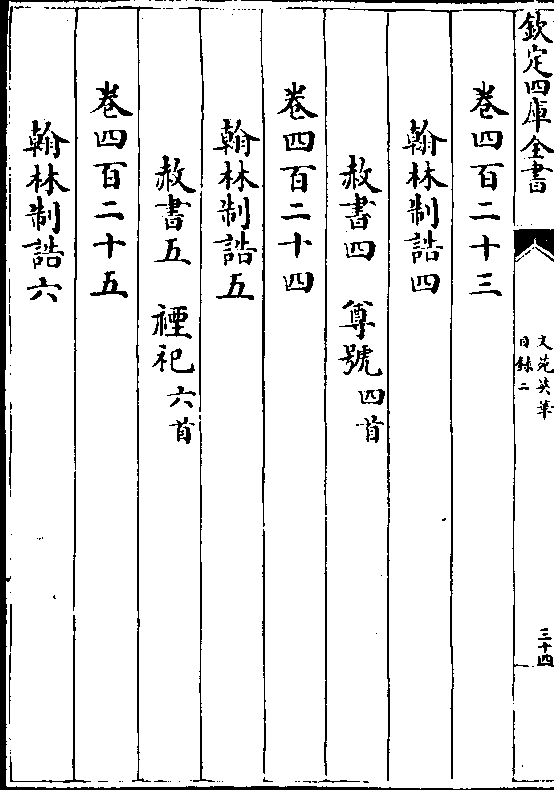 欽定四庫全書
文苑英華
目録二
三十四
卷四百二十三
翰林制誥四
赦書四　尊號四首
卷四百二十四
翰林制誥五
赦書五　禋祀六首
卷四百二十五
翰林制誥六